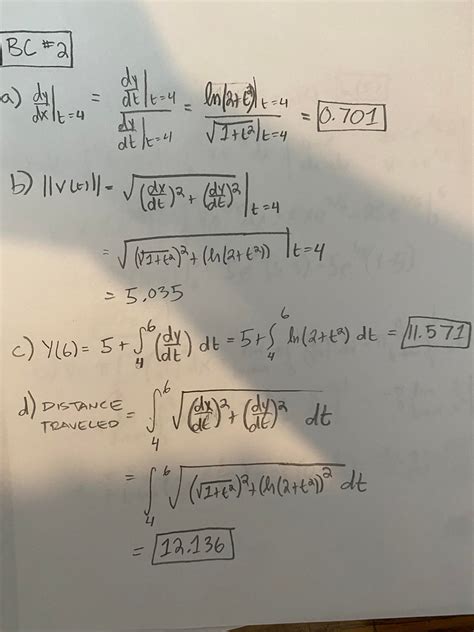 BC #2
a) dy/dx|t=4 = dy/dt|t=4 / dy/dt|t=4 = ln(2+t²)|t=4 / √1+t²|t=4 = 0.701
b) ||V(t)|| = √(dx/dt)² + (dy/dt)² |t=4
= √(√1+t²)² + (ln(2+t²)) |t=4
= 5.035
c) Y(6) = 5 + ∫₄⁶ (dy/dt) dt = 5 + ∫₄⁶ ln(2+t²) dt = 11.571
d) DISTANCE TRAVELED = ∫₄⁶ √(dx/dt)² + (dy/dt)² dt
= ∫₄⁶ √(√1+t²)² + (ln(2+t²))² dt
= 12.136